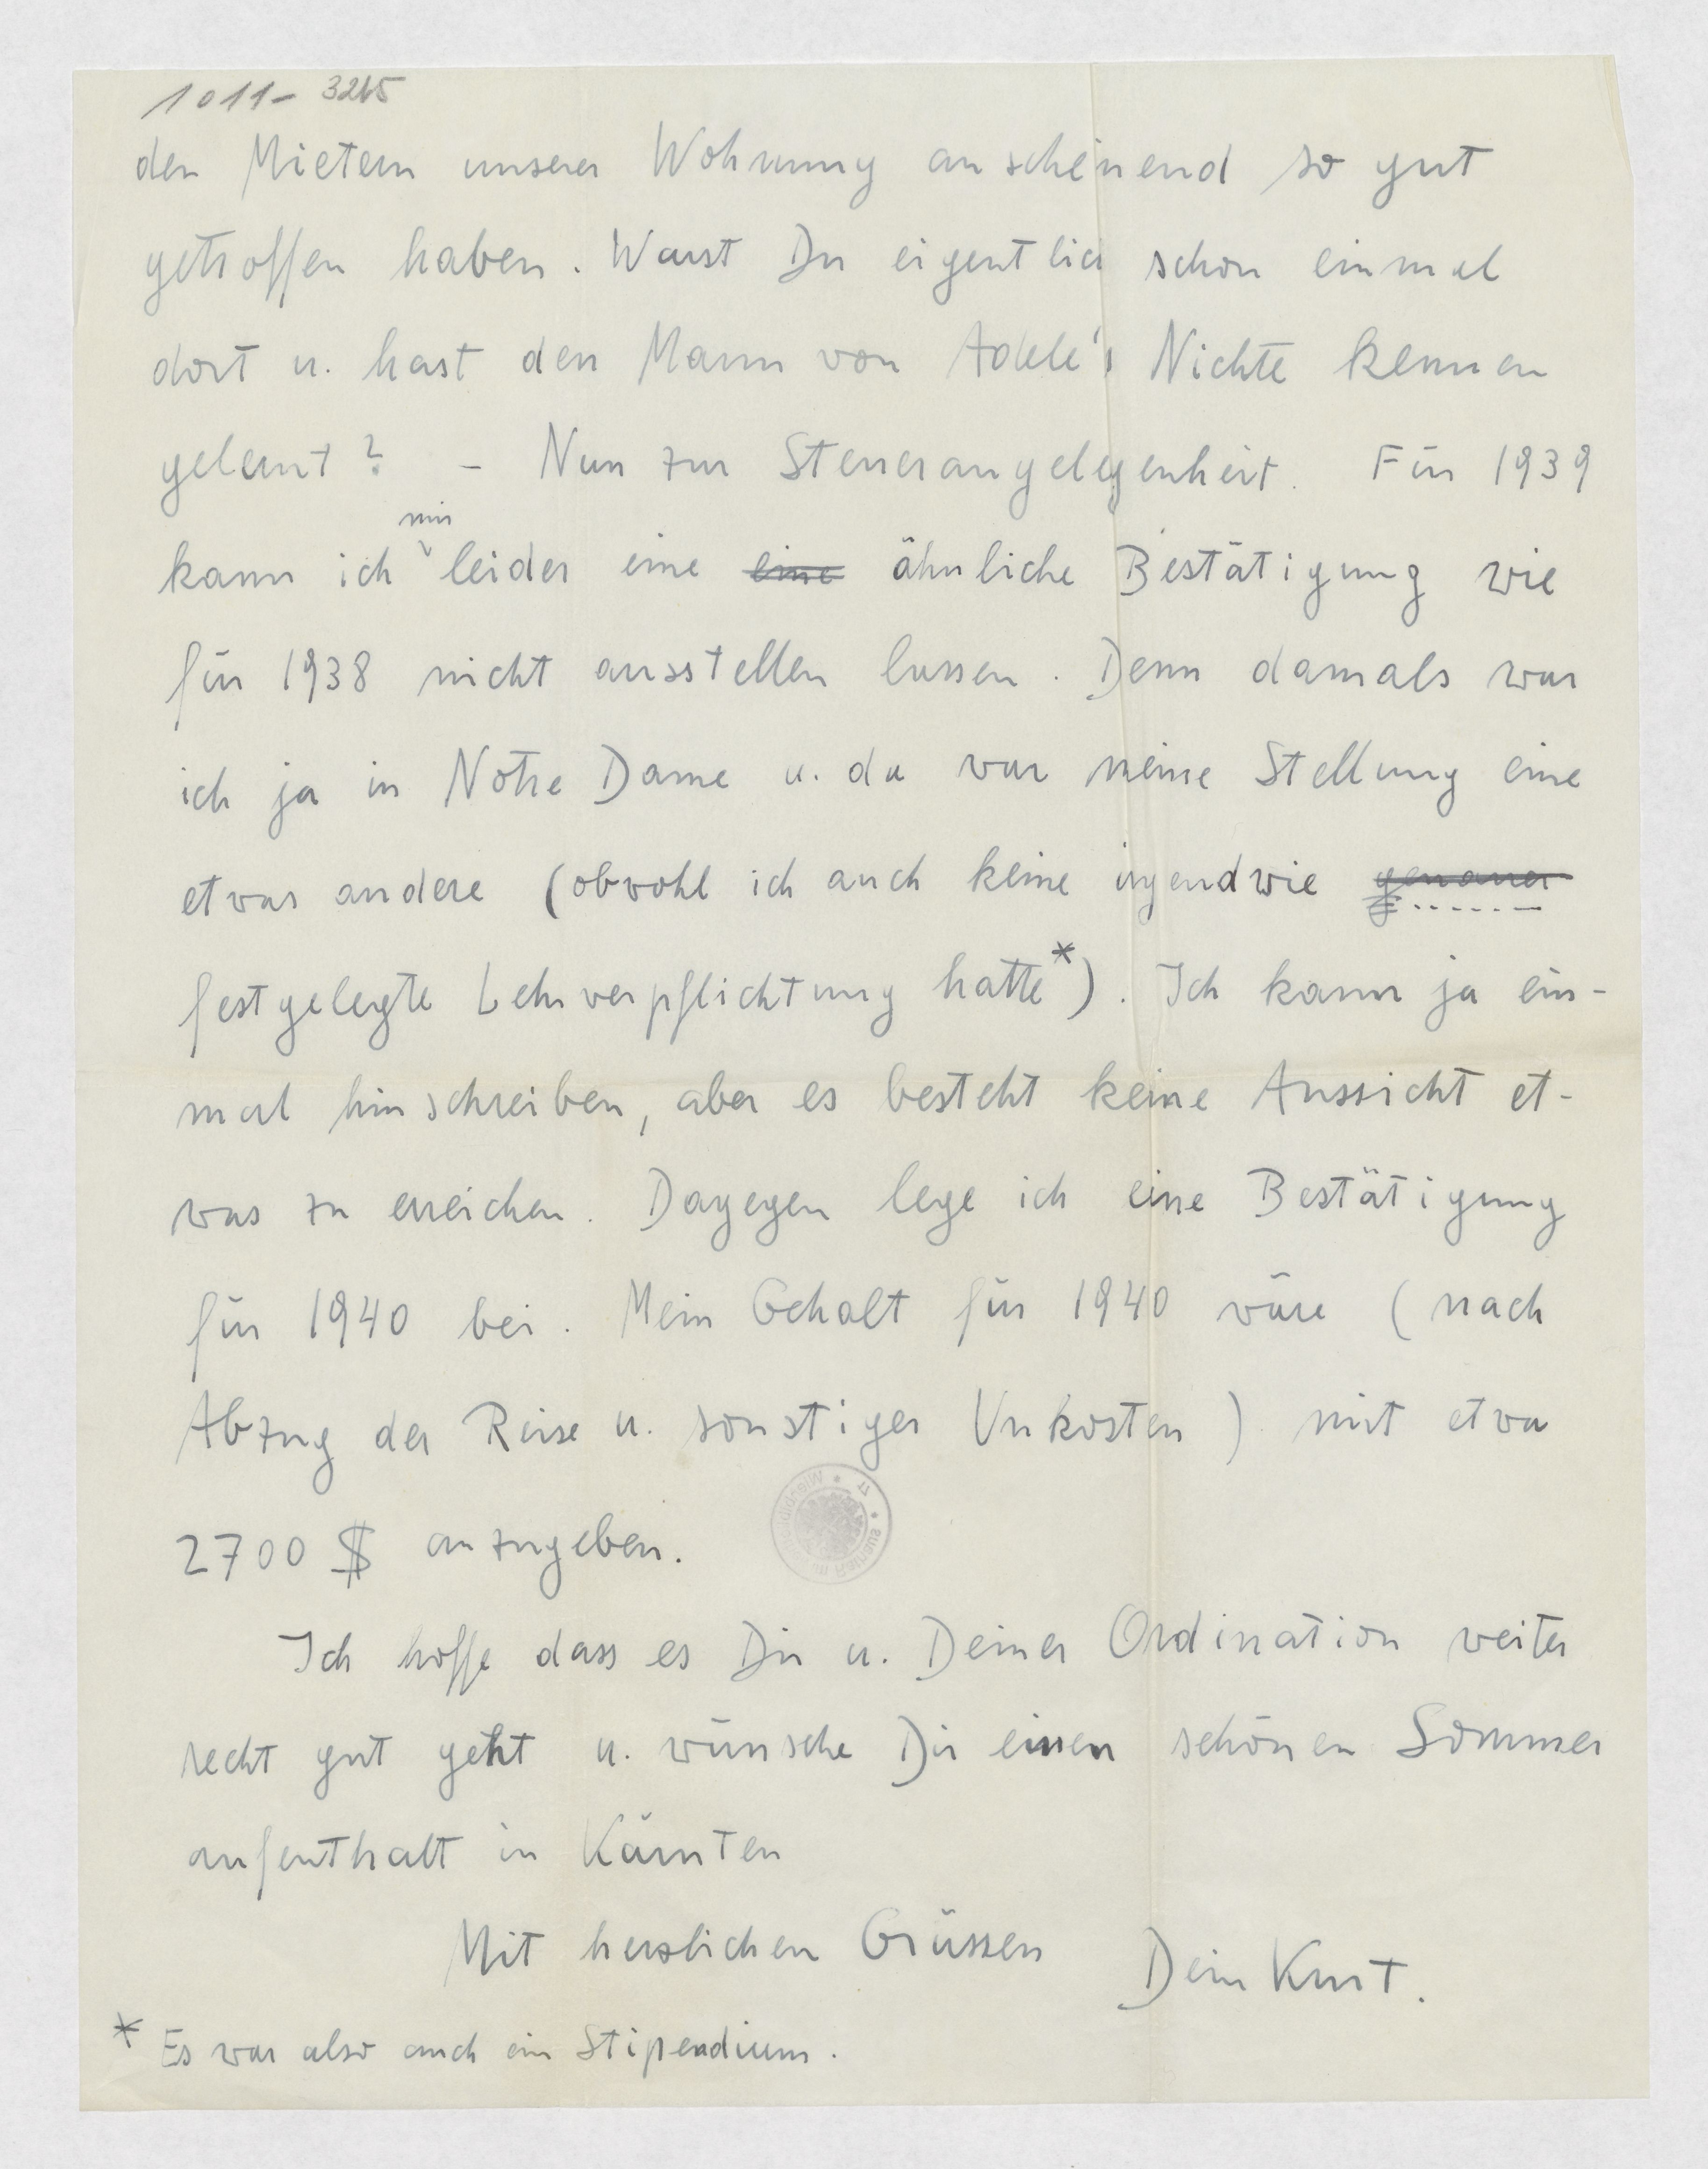 1011- 3265
den Mietern unserer Wohnung anscheinend so gut
getroffen haben. Warst Du eigentlich schon einmal
dort u. hast den Mann von Adele's Nichte kennen
gelernt? – Nun zur Steuerangelegenheit. Für 1939
mir
kann ich leider eine eine ähnliche Bestätigung wie
für 1938 nicht ausstellen lassen. Denn damals war
ich ja in Notre Dame u. da war meine Stellung eine
etwas andere (obwohl ich auch keine irgendwie genauer
festgelegte Lehrverpflichtung hatte*). Ich kann ja ein-
mal hinschreiben, aber es besteht keine Aussicht et-
was zu erreichen. Dagegen lege ich eine Bestätigung
für 1940 bei. Mein Gehalt für 1940 wäre (nach
Abzug der Reise u. sonstiger Unkosten) mit etwa
2700 $ anzugeben.
Ich hoffe dass es Dir u. Deiner Ordination weiter
recht gut geht u. wünsche Dir einen schönen Sommer
aufenthalt in Kärnten
Mit herzlichen Grüssen Dein Kurt.
* Es war also auch ein Stipendium.